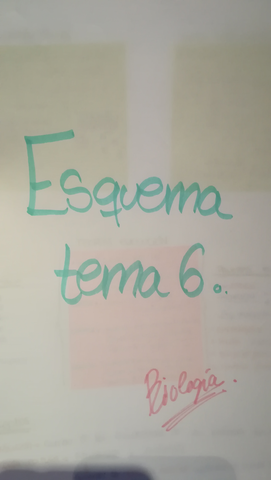 Esquema
tema 6..
Biología.